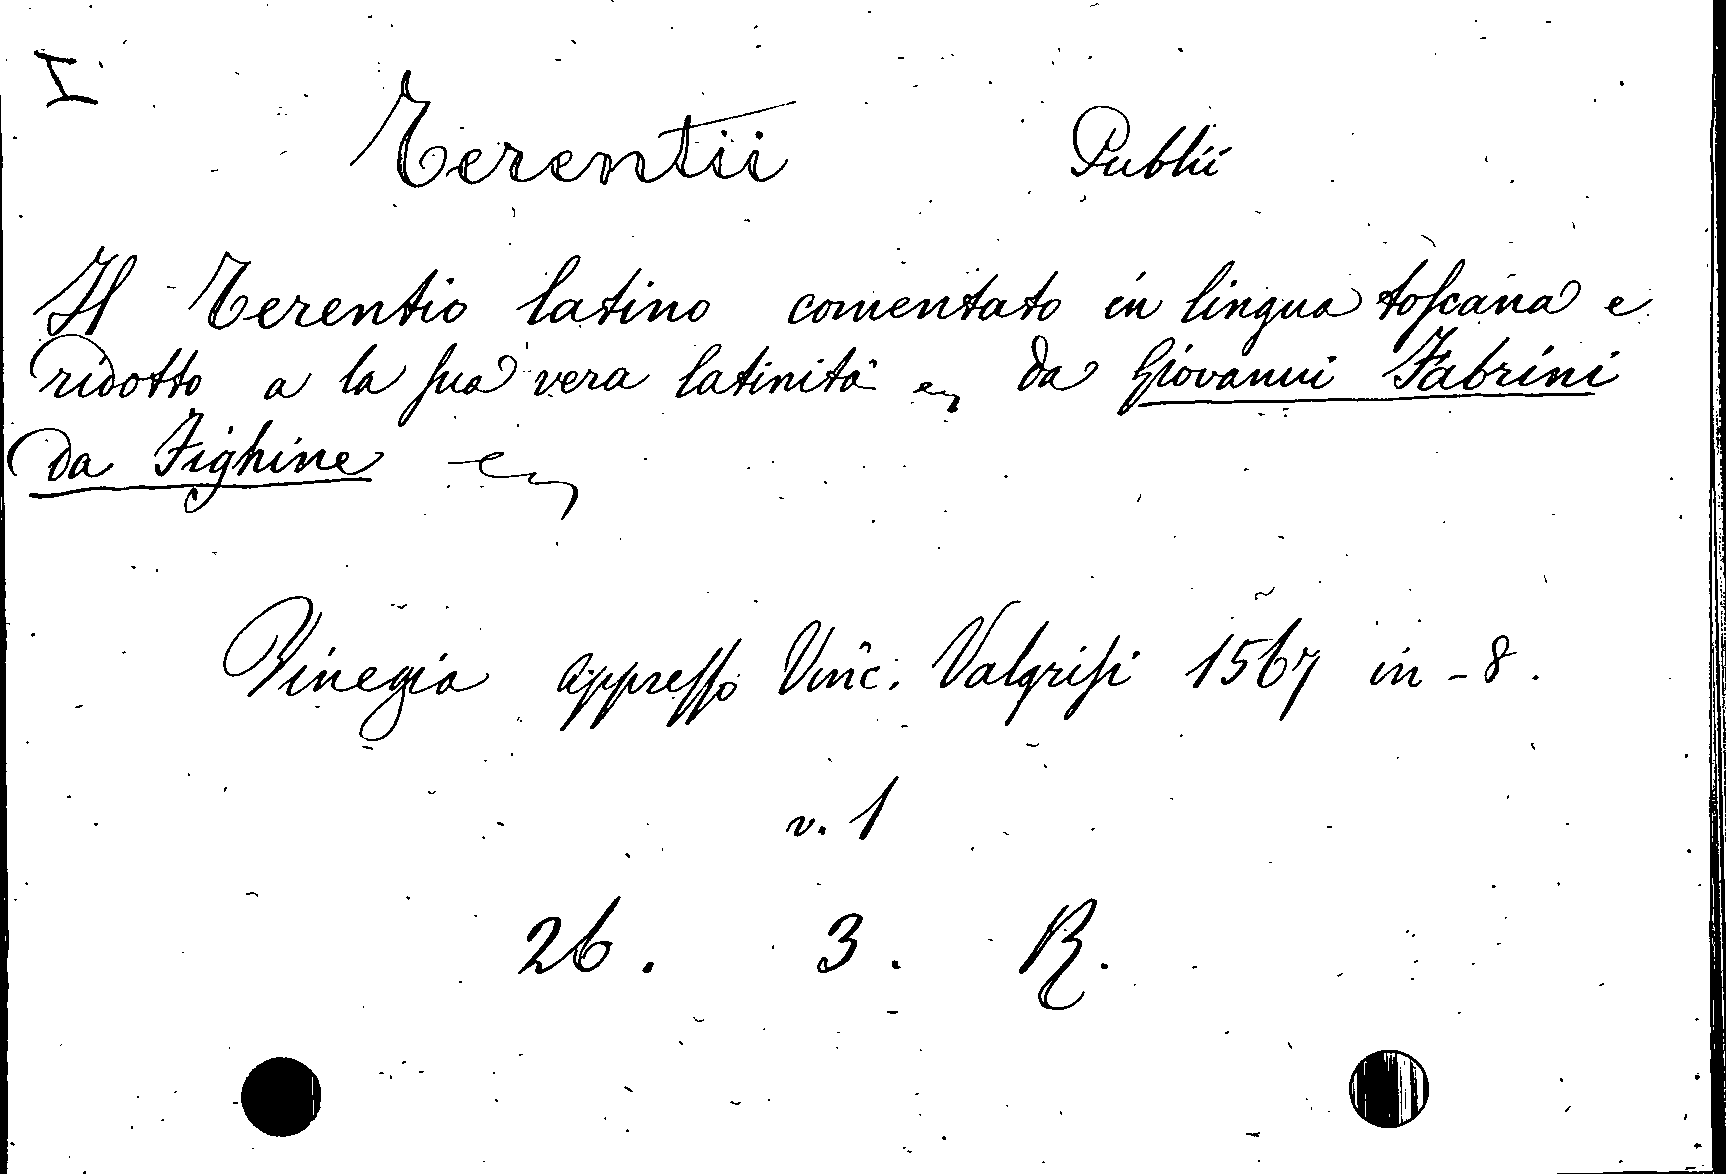 I
Terentii Publii
Il Terentio latino comentato in lingua toſcana e
ridotto a la ſua vera latinità da Giovanni Fabrini
da Fighine
Vinegia appreſſo Vinc. Valgriſi 1567 in-8.
v. 1
26. 3. R.